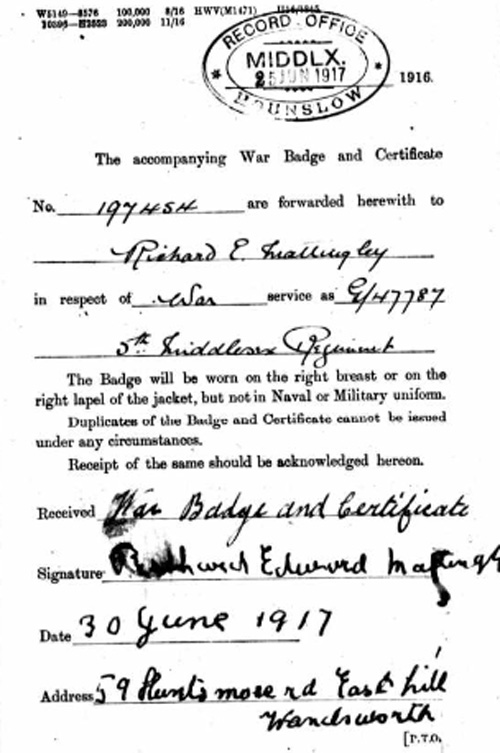 W5149—8576 100,000 8/16 HWV(M1471)
200,000 11/16
RECORD OFFICE
MIDDLX.
25 JUN 1917
HOUNSLOW
1916.
The accompanying War Badge and Certificate
No. 197454 are forwarded herewith to
Richard E. Mattingley
in respect of War service as G/47787
5th Middlesex Regiment
The Badge will be worn on the right breast or on the
right lapel of the jacket, but not in Naval or Military uniform.
Duplicates of the Badge and Certificate cannot be issued
under any circumstances.
Receipt of the same should be acknowledged hereon.
Received War Badge and Certificate
Signature Edward
Date 30 June 1917
Address 59 Huntsmoor rd East hill
Wandsworth
[P.T.O.